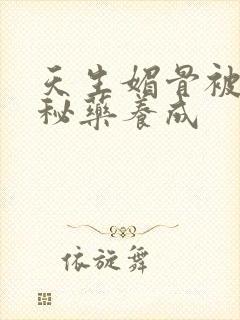 天生媚骨被
秘藥养成
依旋舞